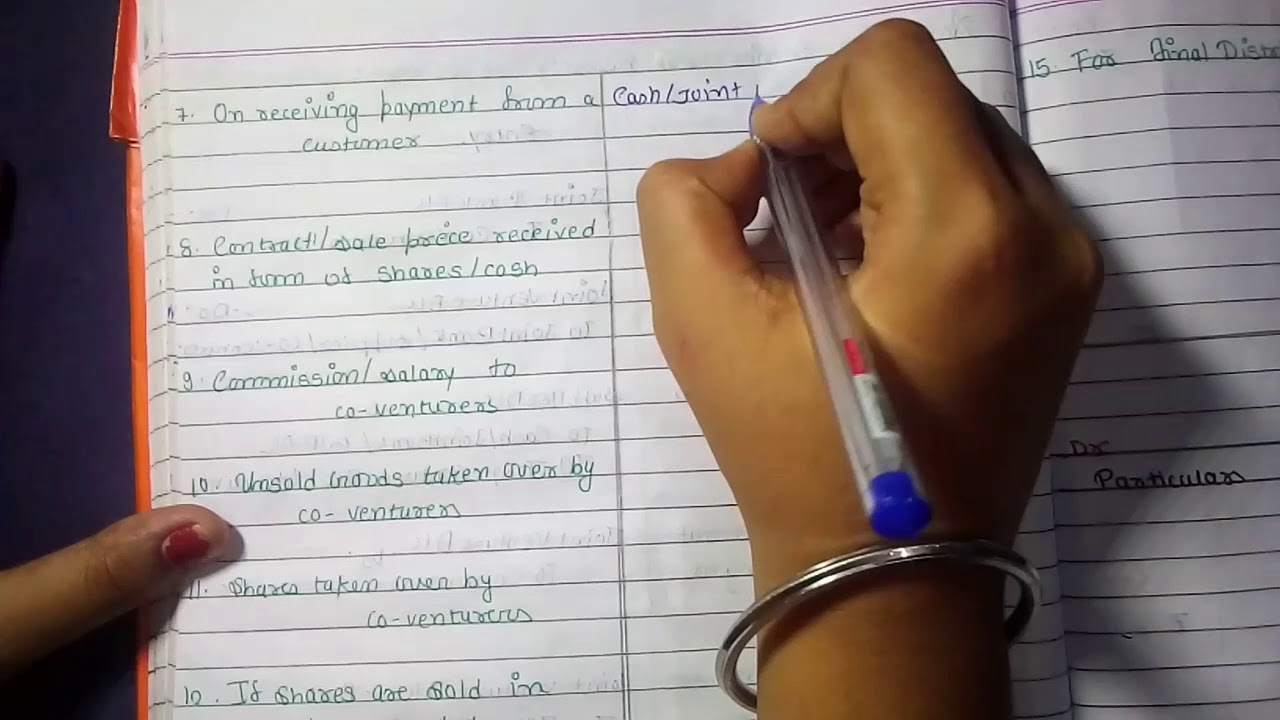 7. On receiving payment from a
customer
Cash/Joint
8. Contract/sale price received
in form of shares/cash
9. Commission/salary to
co-venturers
10. Unsold Goods taken over by
co-venturer
11. Shares taken over by
co-venturers
12. If shares are sold in
15. For final Dist
Dr
Particulars